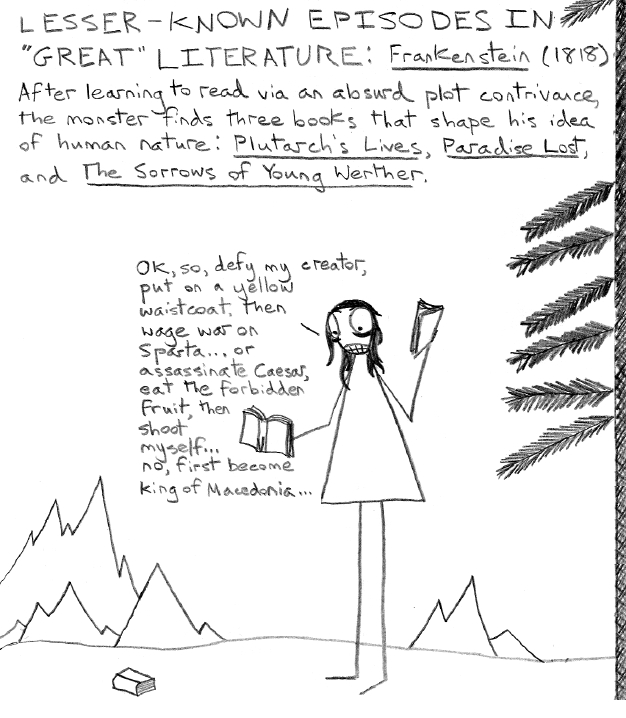 LESSER-KNOWN EPISODES IN
"GREAT" LITERATURE: Frankenstein (1818)
After learning to read via an absurd plot contrivance,
the monster finds three books that shape his idea
of human nature: Plutarch's Lives, Paradise Lost,
and The Sorrows of Young Werther.
OK, so, defy my creator,
put on a yellow
waistcoat, then
wage war on
Sparta... or
assassinate Caesar,
eat the forbidden
fruit, then
shoot
myself...
no, first become
king of Macedonia...